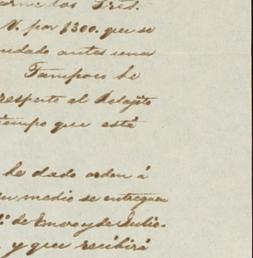 los Sres.
V. por $300. que se
mudado antes una
Tampoco he
respecto al
tiempo que está
he dado orden á
su medio se entreguen
de Enero y de Julio.
y que recibirá